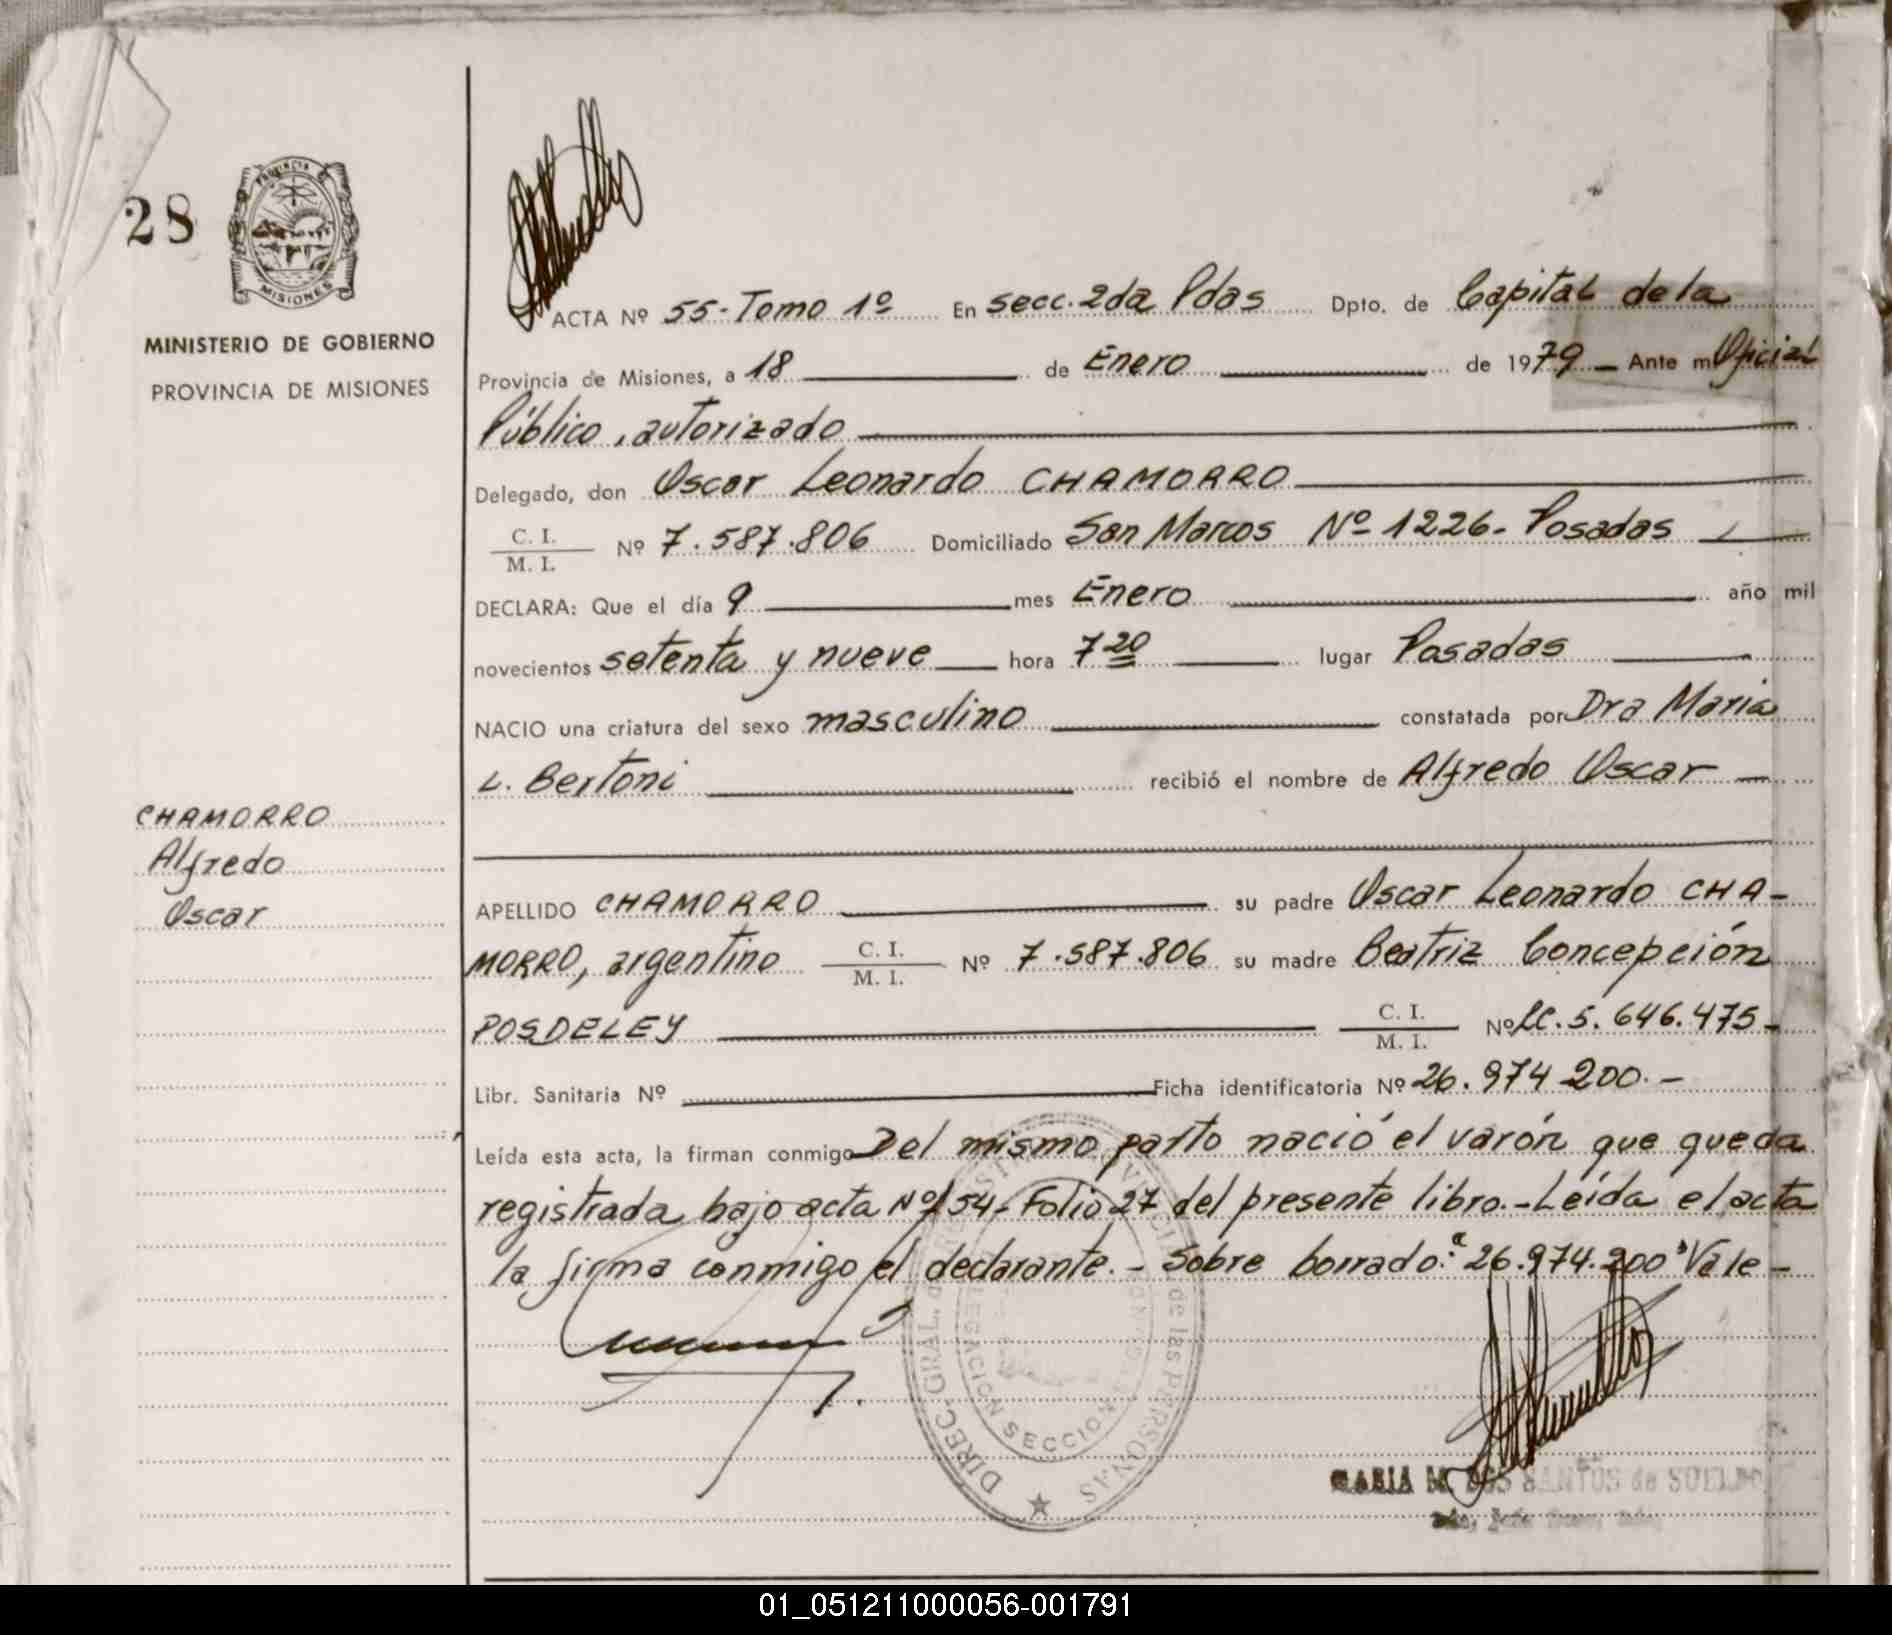 28
PROVINCIA
MISIONES
MINISTERIO DE GOBIERNO
PROVINCIA DE MISIONES
ACTA Nº 55-Tomo 1º En Secc. 2da Pdas Dpto. de Capital de la
Provincia de Misiones, a 18 de Enero de 1979 Ante mí Oficial
Público, autorizado
Delegado, don Oscar Leonardo CHAMORRO
C. I.
M. I. Nº 7.587.806 Domiciliado San Marcos Nº 1226- Posadas
DECLARA: Que el día 9 mes Enero año mil
novecientos setenta y nueve hora 7 20 lugar Posadas
NACIO una criatura del sexo masculino constatada por Dra Maria
L. Bertoni recibió el nombre de Alfredo Oscar
CHAMORRO
Alfredo
Oscar
APELLIDO CHAMORRO su padre Oscar Leonardo CHA-
MORRO, argentino C. I. M. I. Nº 7.587.806 su madre Beatriz Concepción
POSDELEY C. I. M. I. Nº LC. 5.646.475-
Libr. Sanitaria Nº Ficha identificatoria Nº 26.974 200.-
Leída esta acta, la firman conmigo Del mismo parto nació el varón que queda
registrada bajo acta Nº 54- Folio 27 del presente libro.- Leída el acta
la firma conmigo el declarante.- Sobre borrado: "26.974.200" Vale-
DIREC. GRAL. de las PERSONAS
SECCION
MARIA M. DOS SANTOS de SUELDO
01_051211000056-001791